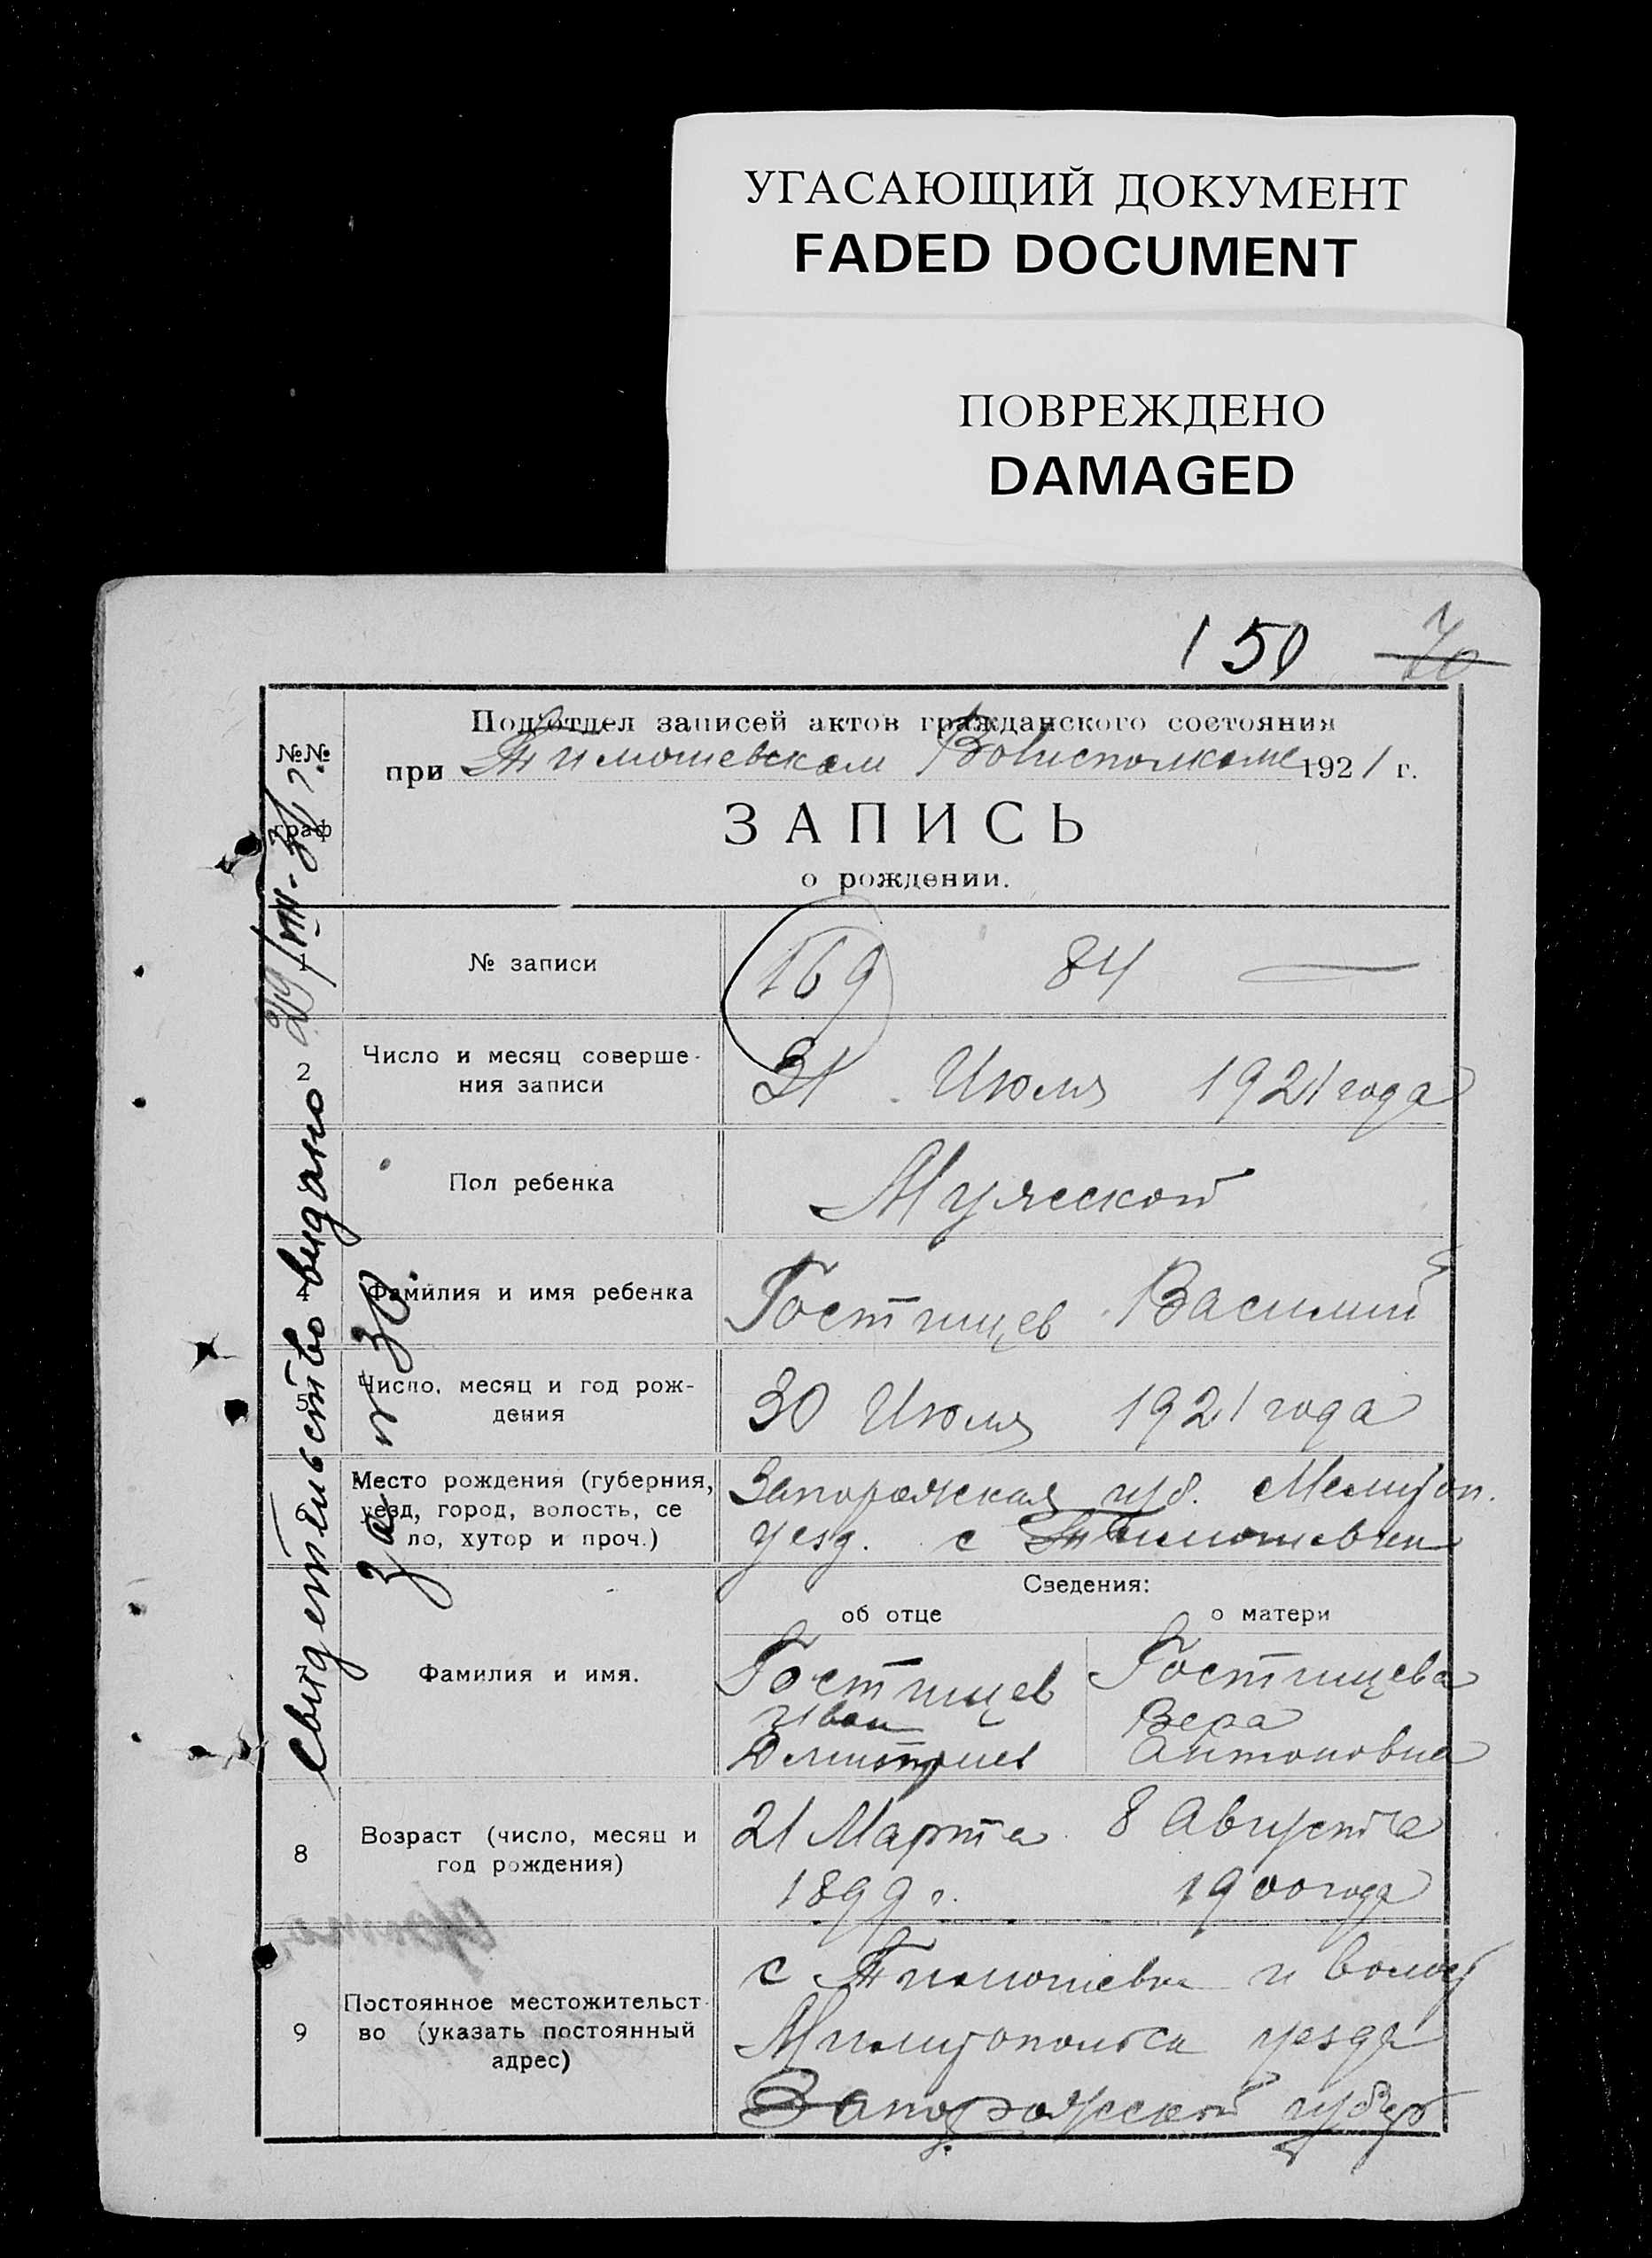 УГАСАЮЩИЙ ДОКУМЕНТ
FADED DOCUMENT
ПОВРЕЖДЕНО
DAMAGED
150 70
Под'отдел записей актов гражданского состояния
№№
граф
при Тимошевском Волисполкоме 1921 г.
ЗАПИСЬ
о рождении.
1
№ записи
169 84
2
Число и месяц соверше-
ния записи
31 Июля 1921 года
Пол ребенка
Мужской
4
Фамилия и имя ребенка
Гостищев Василий
5
Число, месяц и год рож-
дения
30 Июля 1921 года
Место рождения (губерния,
уезд, город, волость, се
ло, хутор и проч.)
Запорожская губ. Мелитоп.
уезд. с Тимошевки
Сведения:
об отце о матери
Фамилия и имя.
Гостищев Гостищева
Иван Вера
Дмитриев Антоновна
8
Возраст (число, месяц и
год рождения)
21 Марта 8 Августа
1899 г. 1900 года
9
Постоянное местожительст
во (указать постоянный
адрес)
с Тимошевка и волост
Мелитопольск уезда
Запорожской губер
Свидетельство выдано
за № 30.